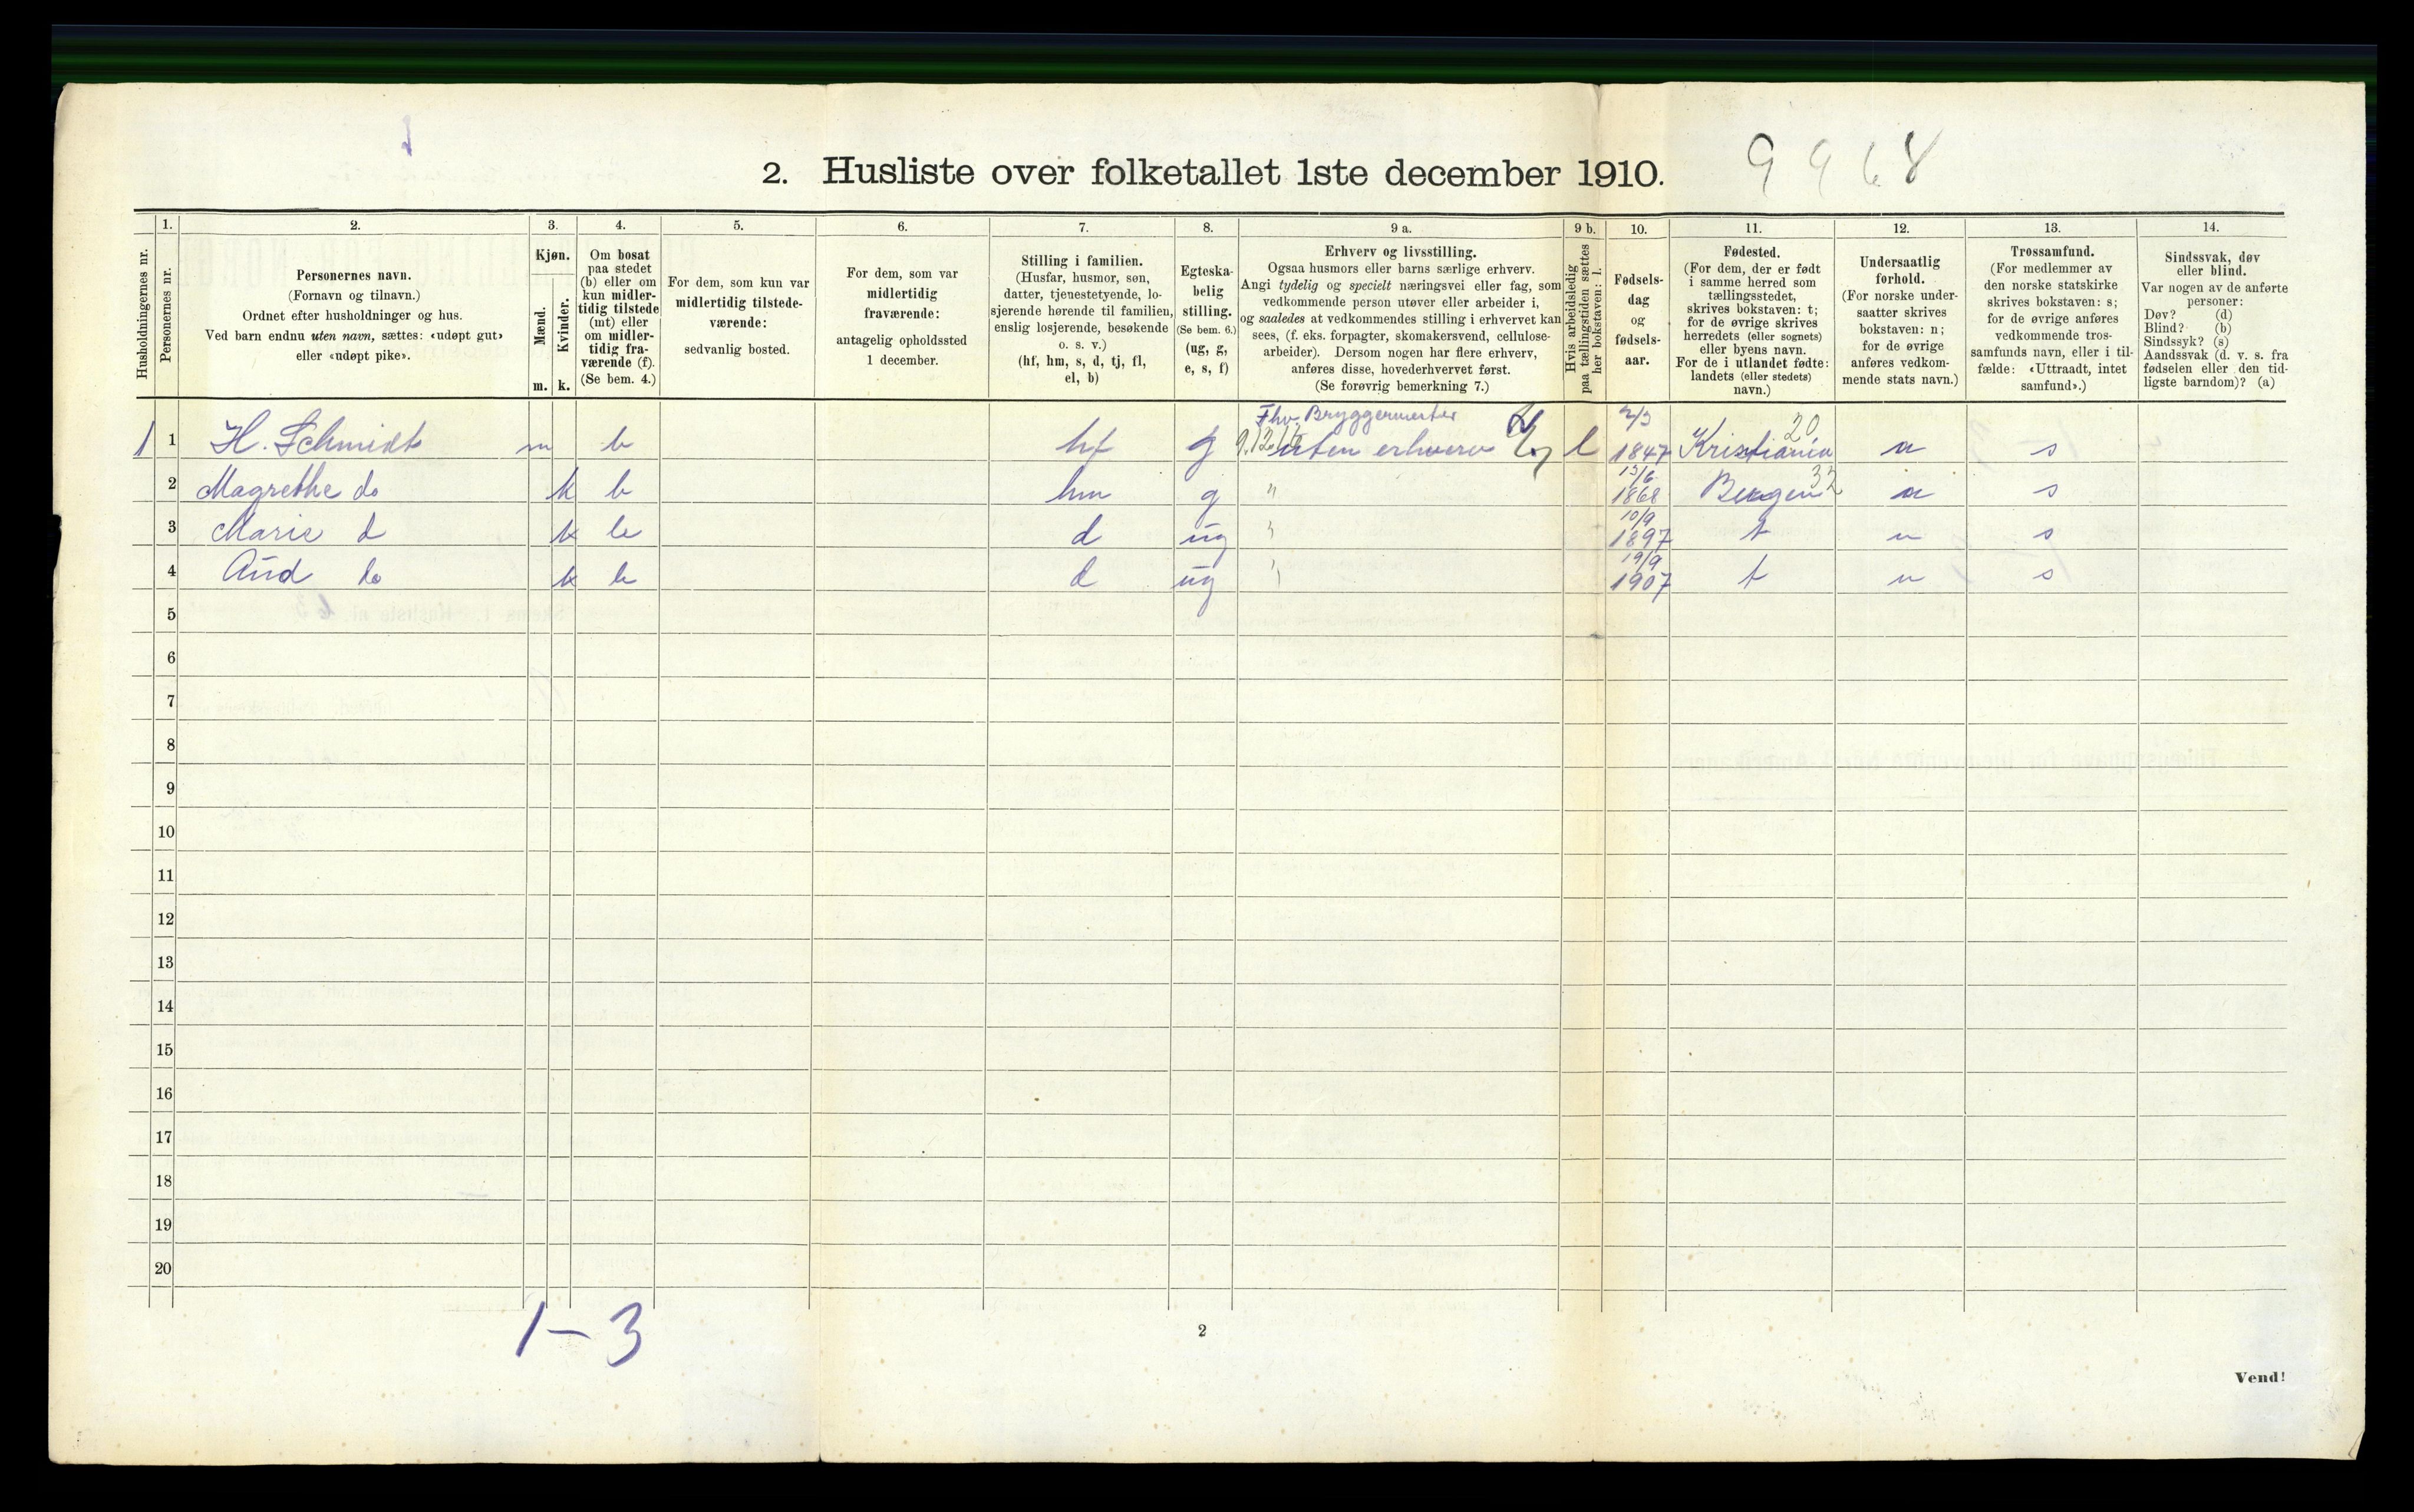 9968
2. Husliste over folketallet 1ste december 1910.
Husholdningernes nr.
1.
Personernes nr.
2.
Personernes navn.
(Fornavn og tilnavn.)
Ordnet efter husholdninger og hus.
Ved barn endnu uten navn, sættes: «udøpt gut»
eller «udøpt pike».
3.
Kjøn.
Mænd.
Kvinder.
m. k.
4.
Om bosat
paa stedet
(b) eller om
kun midler-
tidig tilstede
(mt) eller
om midler-
tidig fra-
værende (f).
(Se bem. 4.)
5.
For dem, som kun var
midlertidig tilstede-
værende:
sedvanlig bosted.
6.
For dem, som var
midlertidig
fraværende:
antagelig opholdssted
1 december.
7.
Stilling i familien.
(Husfar, husmor, søn,
datter, tjenestetyende, lo-
sjerende hørende til familien,
enslig losjerende, besøkende
o. s. v.)
(hf, hm, s, d, tj, fl,
el, b)
8.
Egteska-
belig
stilling.
(Se bem. 6.)
(ug, g,
e, s, f)
9 a.
Erhverv og livsstilling.
Ogsaa husmors eller barns særlige erhverv.
Angi tydelig og specielt næringsvei eller fag, som
vedkommende person utøver eller arbeider i,
og saaledes at vedkommendes stilling i erhvervet kan
sees, (f. eks. forpagter, skomakersvend, cellulose-
arbeider). Dersom nogen har flere erhverv,
anføres disse, hovederhvervet først.
(Se forøvrig bemerkning 7.)
9 b.
Hvis arbeidsledig
paa tællingstiden sættes
her bokstaven: l.
10.
Fødsels-
dag
og
fødsels-
aar.
11.
Fødested.
(For dem, der er født
i samme herred som
tællingsstedet,
skrives bokstaven: t;
for de øvrige skrives
herredets (eller sognets)
eller byens navn.
For de i utlandet fødte:
landets (eller stedets)
navn.)
12.
Undersaatlig
forhold.
(For norske under-
saatter skrives
bokstaven: n;
for de øvrige
anføres vedkom-
mende stats navn.)
13.
Trossamfund.
(For medlemmer av
den norske statskirke
skrives bokstaven: s;
for de øvrige anføres
vedkommende tros-
samfunds navn, eller i til-
fælde: «Uttraadt, intet
samfund».)
14.
Sindssvak, døv
eller blind.
Var nogen av de anførte
personer:
Døv? (d)
Blind? (b)
Sindssyk? (s)
Aandssvak (d. v. s. fra
fødselen eller den tid-
ligste barndom)? (a)
Fhv. Bryggermester 2/3 20
1 1 H. Schmidt m b hf g uten erhverv l 1847 Kristiania n s
13/6 32
2 Magrethe do k b hm g " 1868 Bergen n s
10/9
3 Marie d k b d ug " 1897 t n s
19/9
4 Aud do k b d ug " 1907 t n s
5
6
7
8
9
10
11
12
13
14
15
16
17
18
19
20
1 – 3
2
Vend!